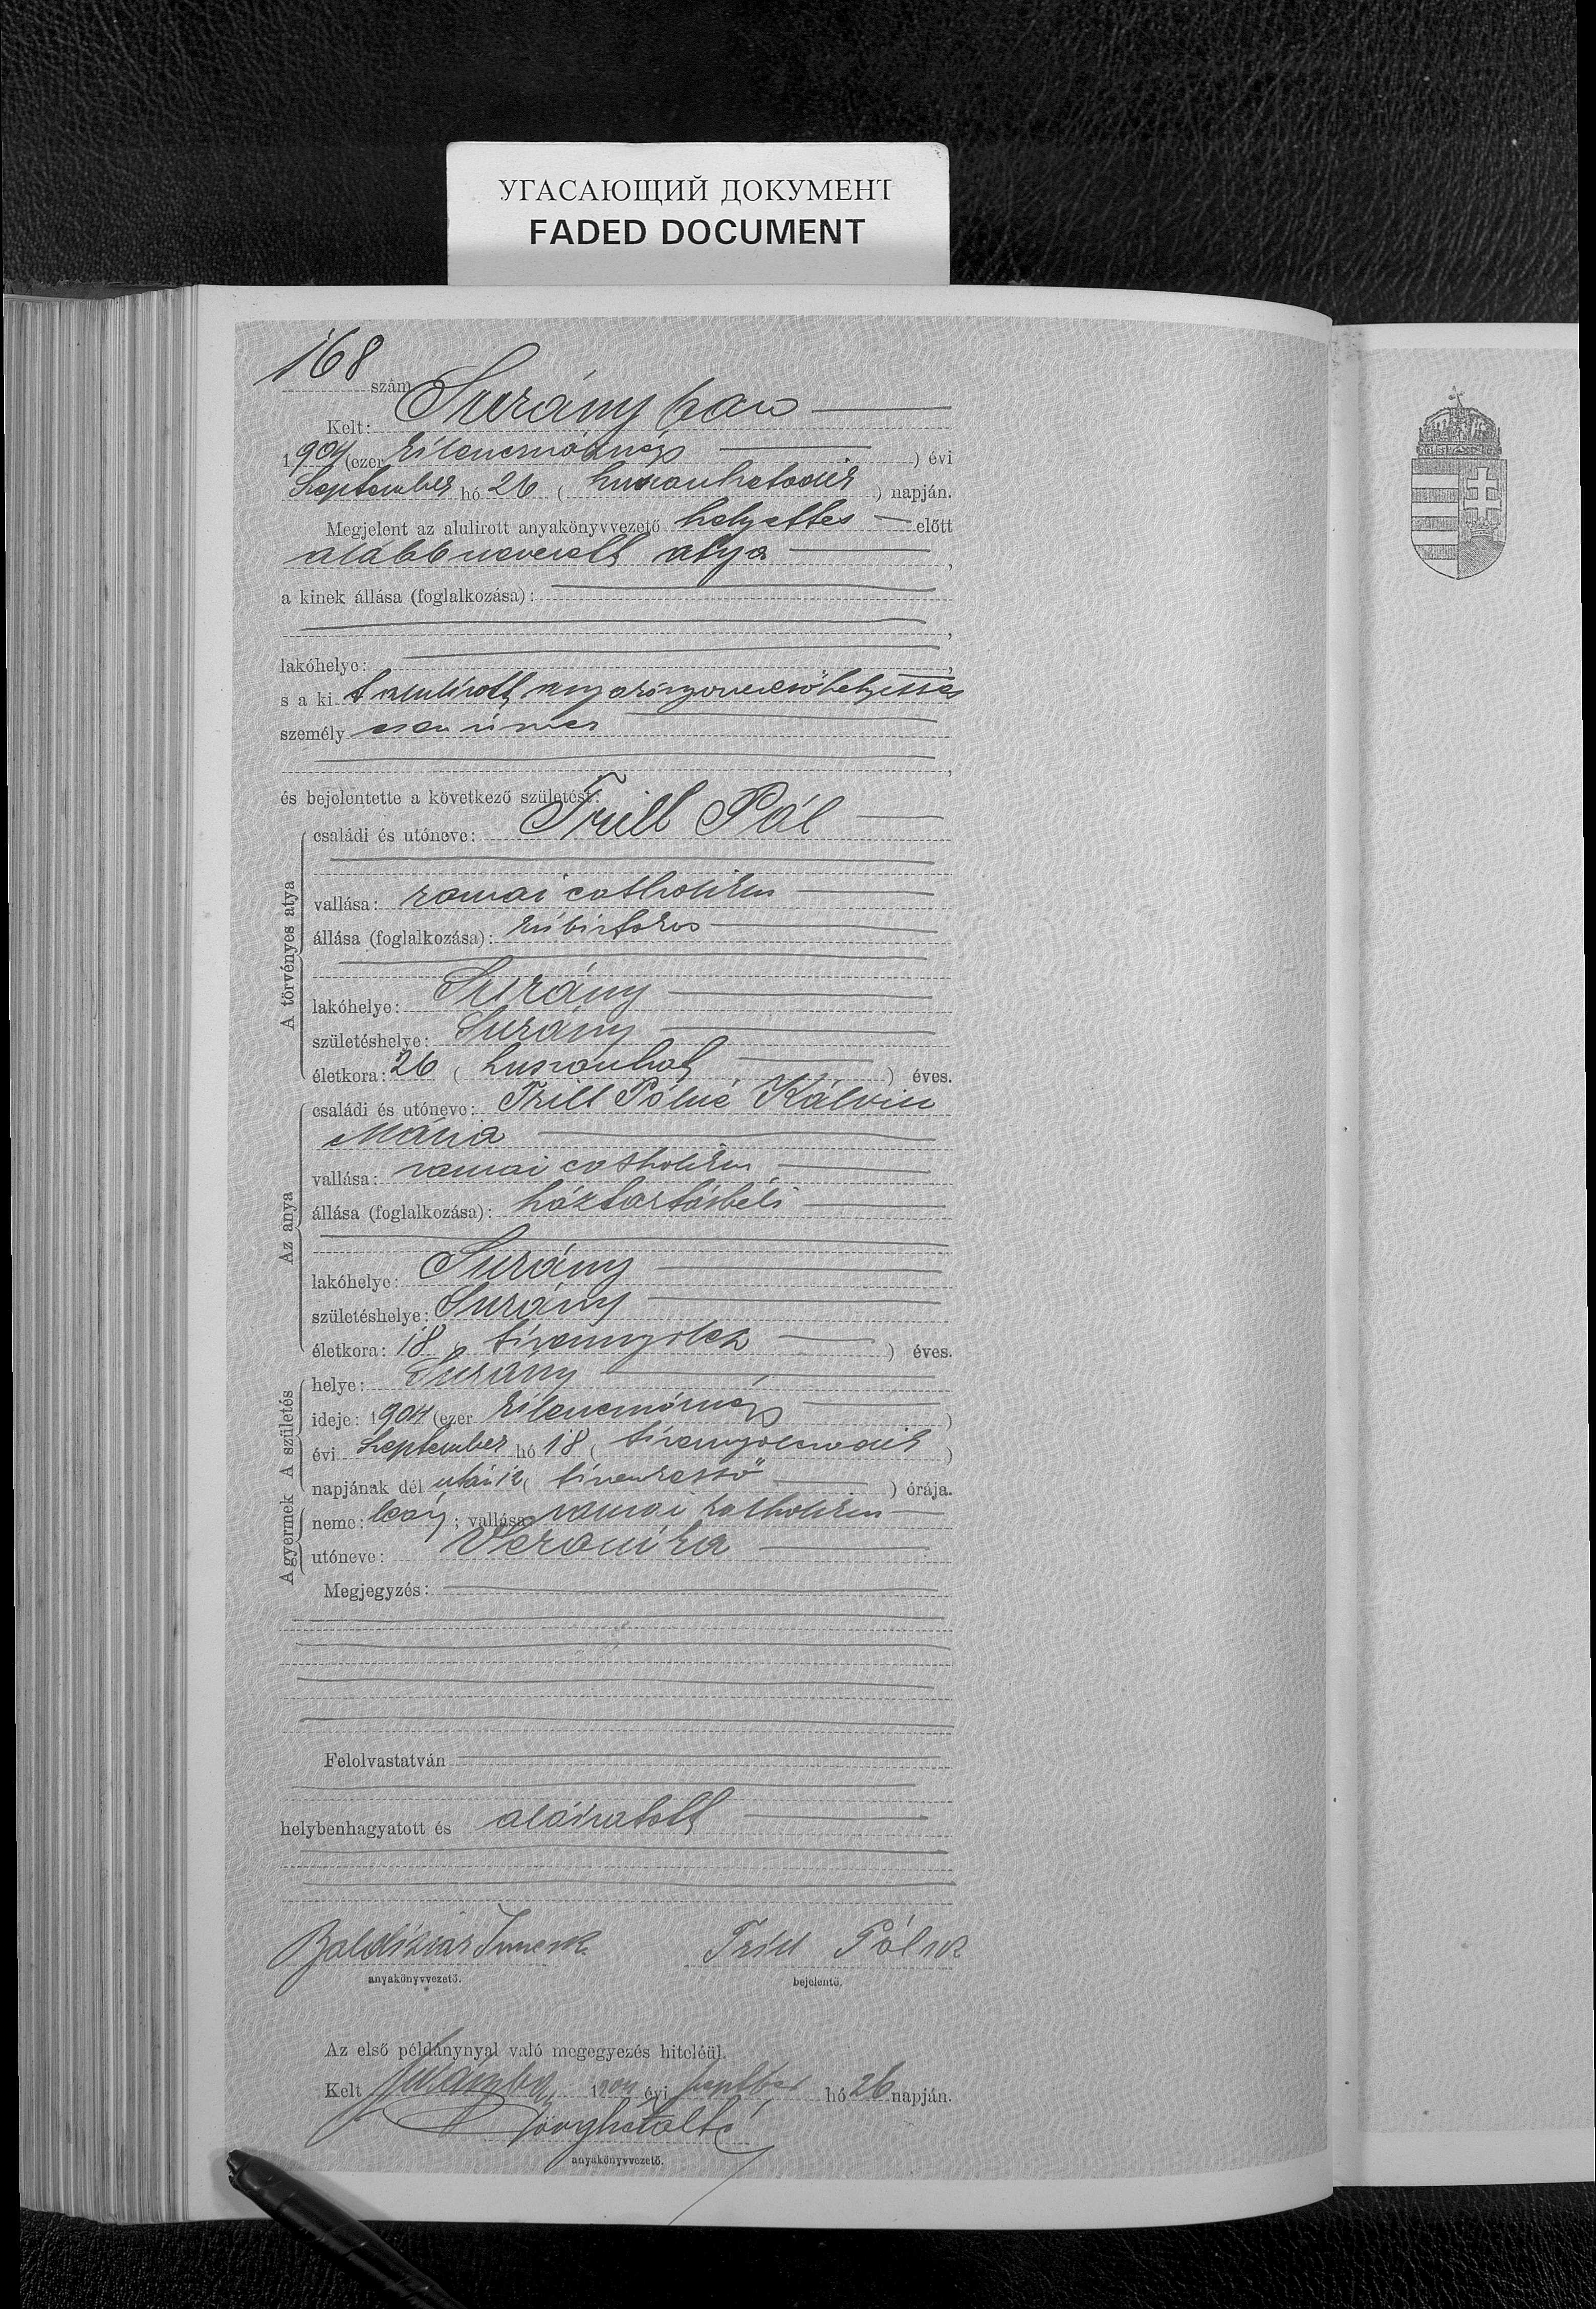 УГАСАЮЩИЙ ДОКУМЕНТ
FADED DOCUMENT
168 szám
Kelt: Surányban
1904 (ezer kilenczszáznégy ) évi
Szeptember hó 26 ( huszonhatodik ) napján.
Megjelent az alulirott anyakönyvvezető helyettes előtt
alább nevezett atya ,
a kinek állása (foglalkozása):
,
lakóhelye: ,
s a ki alulirott anyakönyvvezető helyettes
személy esen ismer
,
és bejelentette a következő születést:
A törvényes atya
családi és utóneve: Trill Pál
vallása: romai catholikus
állása (foglalkozása): kisbirtokos
lakóhelye: Surány
születéshelye: Surány
életkora: 26 ( huszonhat ) éves.
Az anya
családi és utóneve: Trill Pálné Kálvin
Mária
vallása: romai catholikus
állása (foglalkozása): háztartásbeli
lakóhelye: Surány
születéshelye: Surány
életkora: 18 ( tizennyolcz ) éves.
A születés
helye: Surány
ideje: 1904 (ezer kilenczszáznégy )
évi Szeptember hó 18 ( tizennyolczadik )
napjának dél után ( ) órája.
A gyermek
neme: leány ; vallása: romai katholikus
utóneve: Veronika
Megjegyzés:
Felolvastatván
helybenhagyatott és aláiratott
Trill Pál
anyakönyvvezető. bejelentő.
Az első példánynyal való megegyezés hiteléül.
Kelt Surányban 1904 évi szeptber hó 26 napján.
anyakönyvvezető.